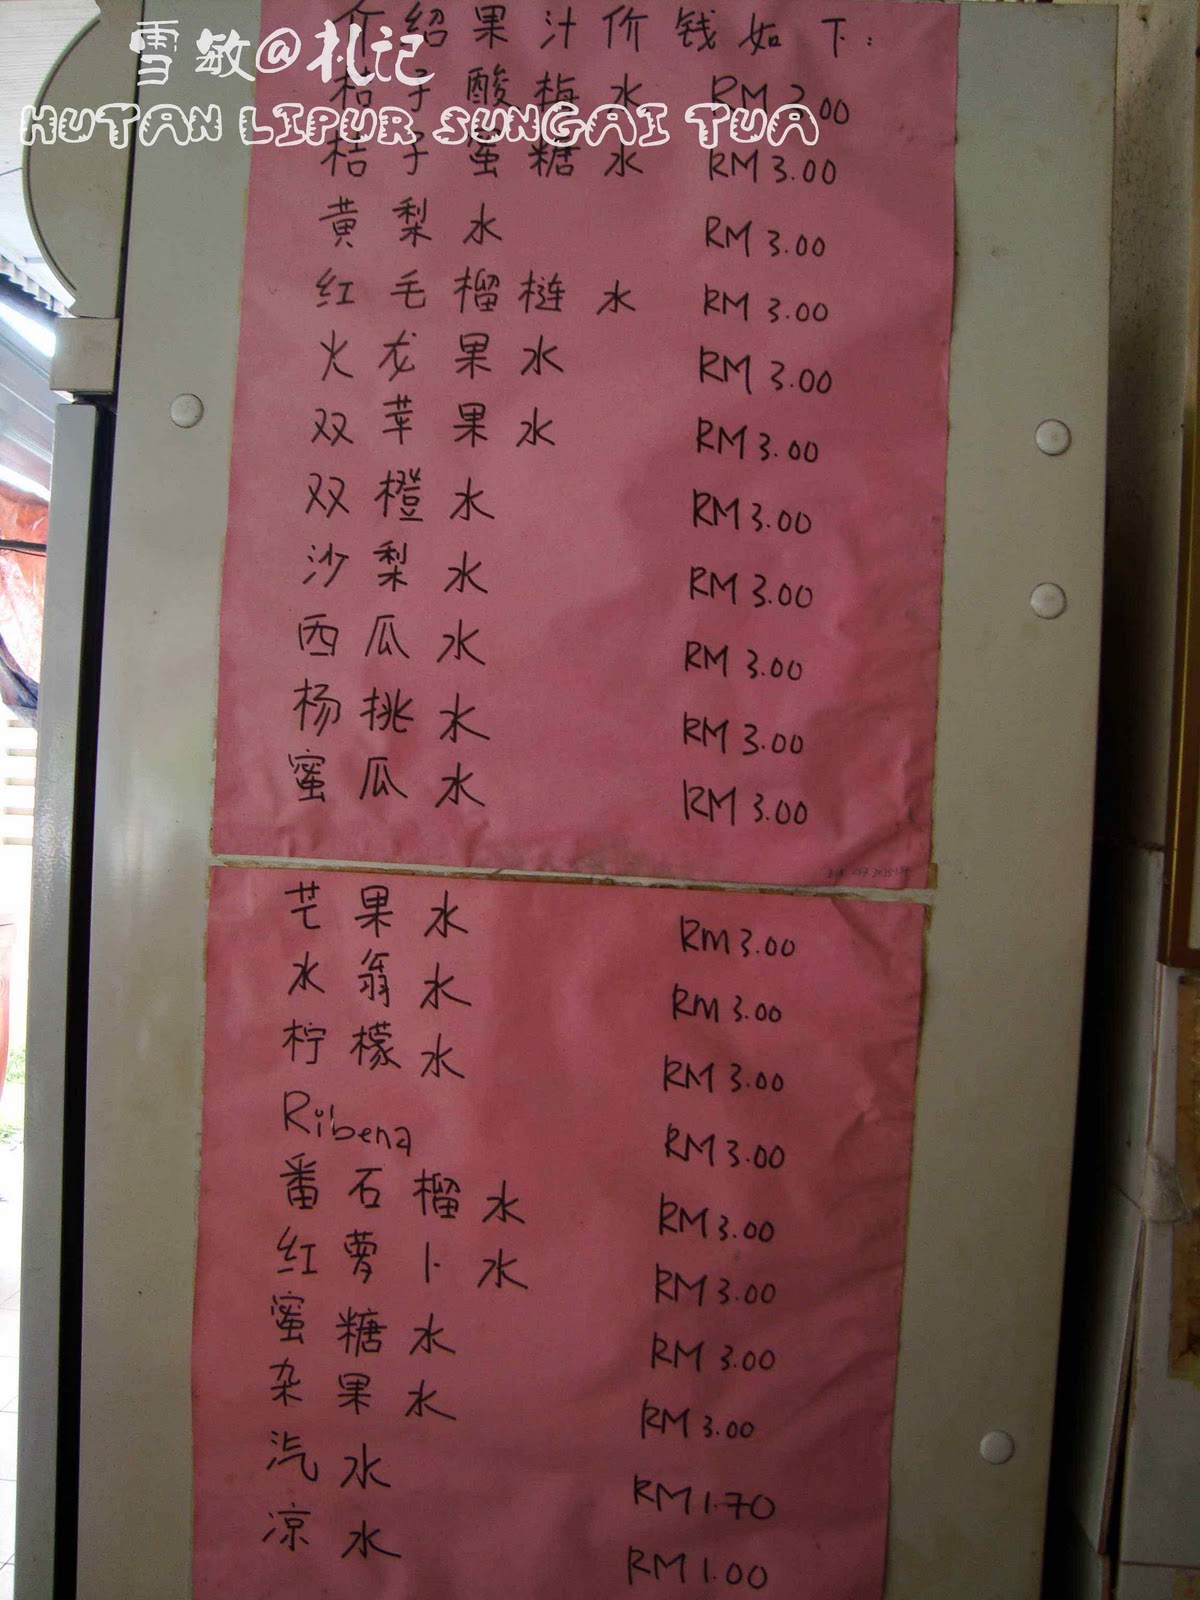 介绍果汁价钱如下:
雪敏@札记
桔子酸梅水 RM 3.00
HUTAN LIPUR SUNGAI TUA
桔子蜜糖水 RM 3.00
黄梨水 RM 3.00
红毛榴梿水 RM 3.00
火龙果水 RM 3.00
双苹果水 RM 3.00
双橙水 RM 3.00
沙梨水 RM 3.00
西瓜水 RM 3.00
杨挑水 RM 3.00
蜜瓜水 RM 3.00
芒果水 Rm 3.00
水翁水 RM 3.00
柠檬水 RM 3.00
Ribena RM 3.00
番石榴水 RM 3.00
红萝卜水 RM 3.00
蜜糖水 RM 3.00
杂果水 RM 3.00
汽水 RM 1.70
凉水 RM 1.00